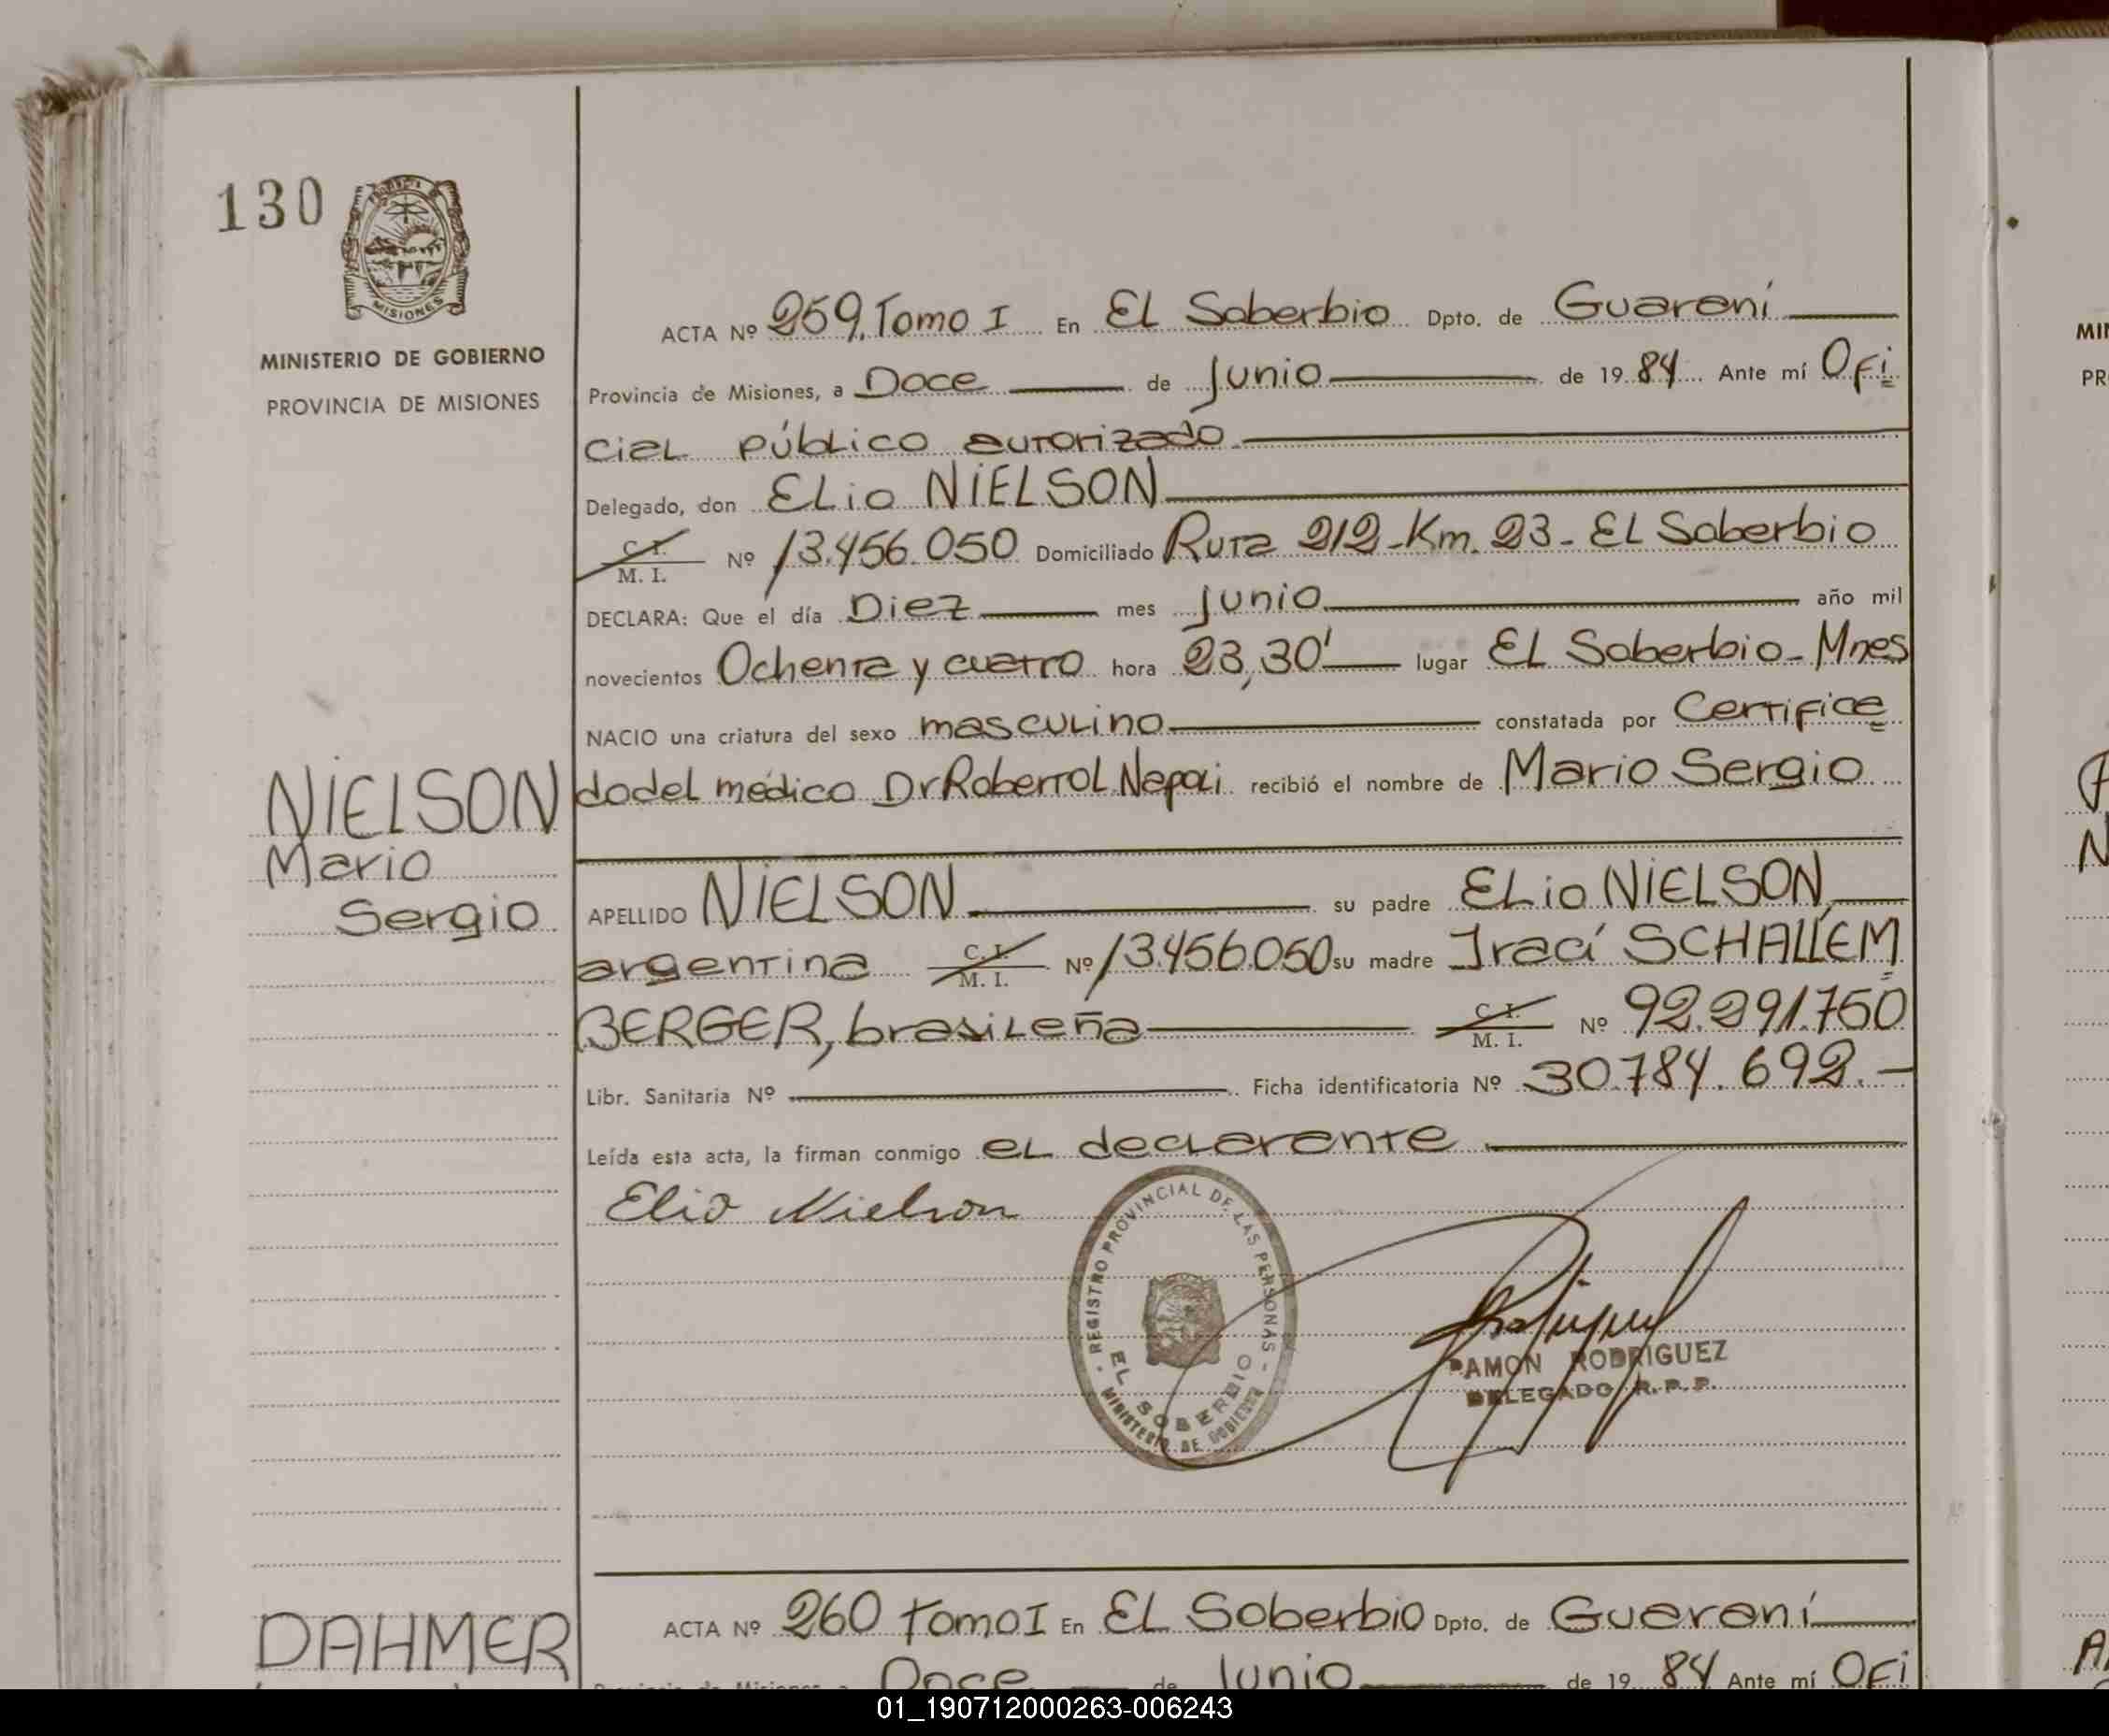 130
MISIONES
MINISTERIO DE GOBIERNO
PROVINCIA DE MISIONES
ACTA Nº 259, Tomo I En EL Soberbio Dpto. de Guaraní
Provincia de Misiones, a Doce de Junio de 19 84 Ante mí Ofi
cial público autorizado
Delegado, don Elio NIELSON
C. I. M. I. Nº 13.456.050 Domiciliado Ruta 212-Km. 23-EL Soberbio
DECLARA: Que el día Diez mes Junio año mil
novecientos Ochenta y cuatro hora 23,30' lugar EL Soberbio-Mnes
NACIO una criatura del sexo masculino constatada por Certifica
do del médico Dr Roberto L Napoli recibió el nombre de Mario Sergio
NIELSON
Mario
Sergio
APELLIDO NIELSON su padre Elio NIELSON,
argentina C. I. M. I. Nº 13.456.050 su madre Iraci SCHALLEM
BERGER, brasileña C. I. M. I. Nº 92.291.750
Libr. Sanitaria Nº Ficha identificatoria Nº 30.784.692.-
Leída esta acta, la firman conmigo el declarante
Elio Nielson
- REGISTRO PROVINCIAL DE LAS PERSONAS -
EL SOBERBIO
MINISTERIO DE GOBIERNO
RAMON RODRIGUEZ
DELEGADO R. P. P.
DAHMER
ACTA Nº 260 Tomo I En EL Soberbio Dpto. de Guaraní
Provincia de Misiones, a Doce de Junio de 19 84 Ante mí Ofi
MI
PR
01_190712000263-006243